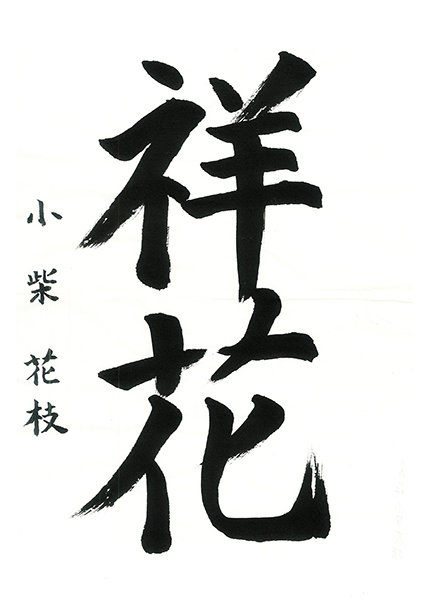 祥花
小柴花枝